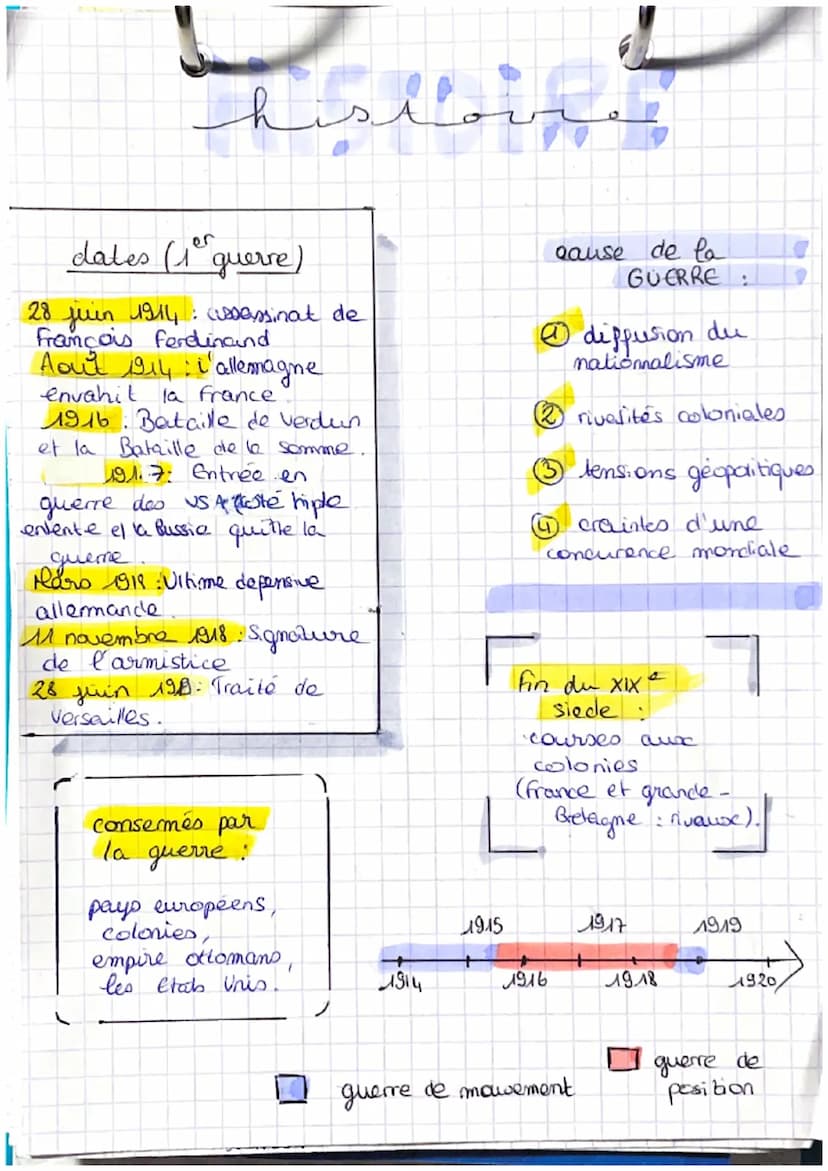 HISTOIRE
histoire
dates (1er guerre)
28 juin 1914 : assassinat de
François Ferdinand
Août 1914 : l'allemagne
envahit la France
1916 : Bataille de Verdun
et la Bataille de la Somme.
1917 : Entrée en
guerre des USA côté triple
entente et la Russie quitte la
guerre.
Mars 1918 : Ultime defensive
allemande.
11 novembre 1918 : Signature
de l'armistice
28 juin : Traité de
Versailles.
cause de la
GUERRE :
① diffusion du
nationnalisme
② rivalités coloniales
③ tensions géopolitiques
④ craintes d'une
concurence mondiale
fin du XIXe
siecle :
courses aux
colonies
(France et grande-
Bretagne : rivaux).
consernés par
la guerre :
pays européens,
colonies,
empire ottomans,
les Etats Unis.
1915 1917 1919
1914 1916 1918 1920
guerre de mouvement
guerre de
position